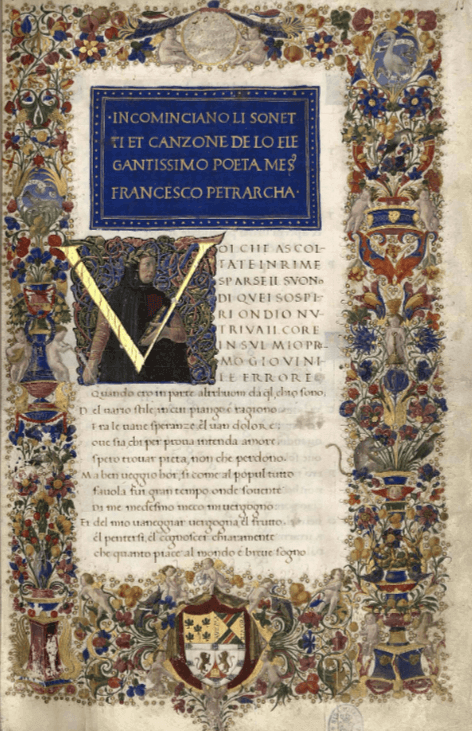 ·INCOMINCIANO LI SONET
TI ET CANZONE DE LO ELE
GANTISSIMO POETA MES
FRANCESCO PETRARCHA·
VOI CHE ASCOL
TATE IN RIME
SPARSE IL SVONo
DI QVEI SOSPI
RI ONDIO NV
TRIVA IL CORE
IN SVL MIO PR
MO GIOVINI
LE ERRORE
Quando ero in parte altrhuom da ql chio sono,
Del uario stile in cui piango & ragiono
Fra le uane speranze el uan dolore:
oue sia chi per proua intenda amore,
spero trouar pieta, non che perdono.
Ma ben ueggio hor, si come al popul tutto
fauola fui gran tempo onde souente
Di me medesimo meco mi uergogno
Et del mio uaneggiar uergogna el frutto,
el pentersi, el cognoscer chiaramente
che quanto piace al mondo e breue sogno